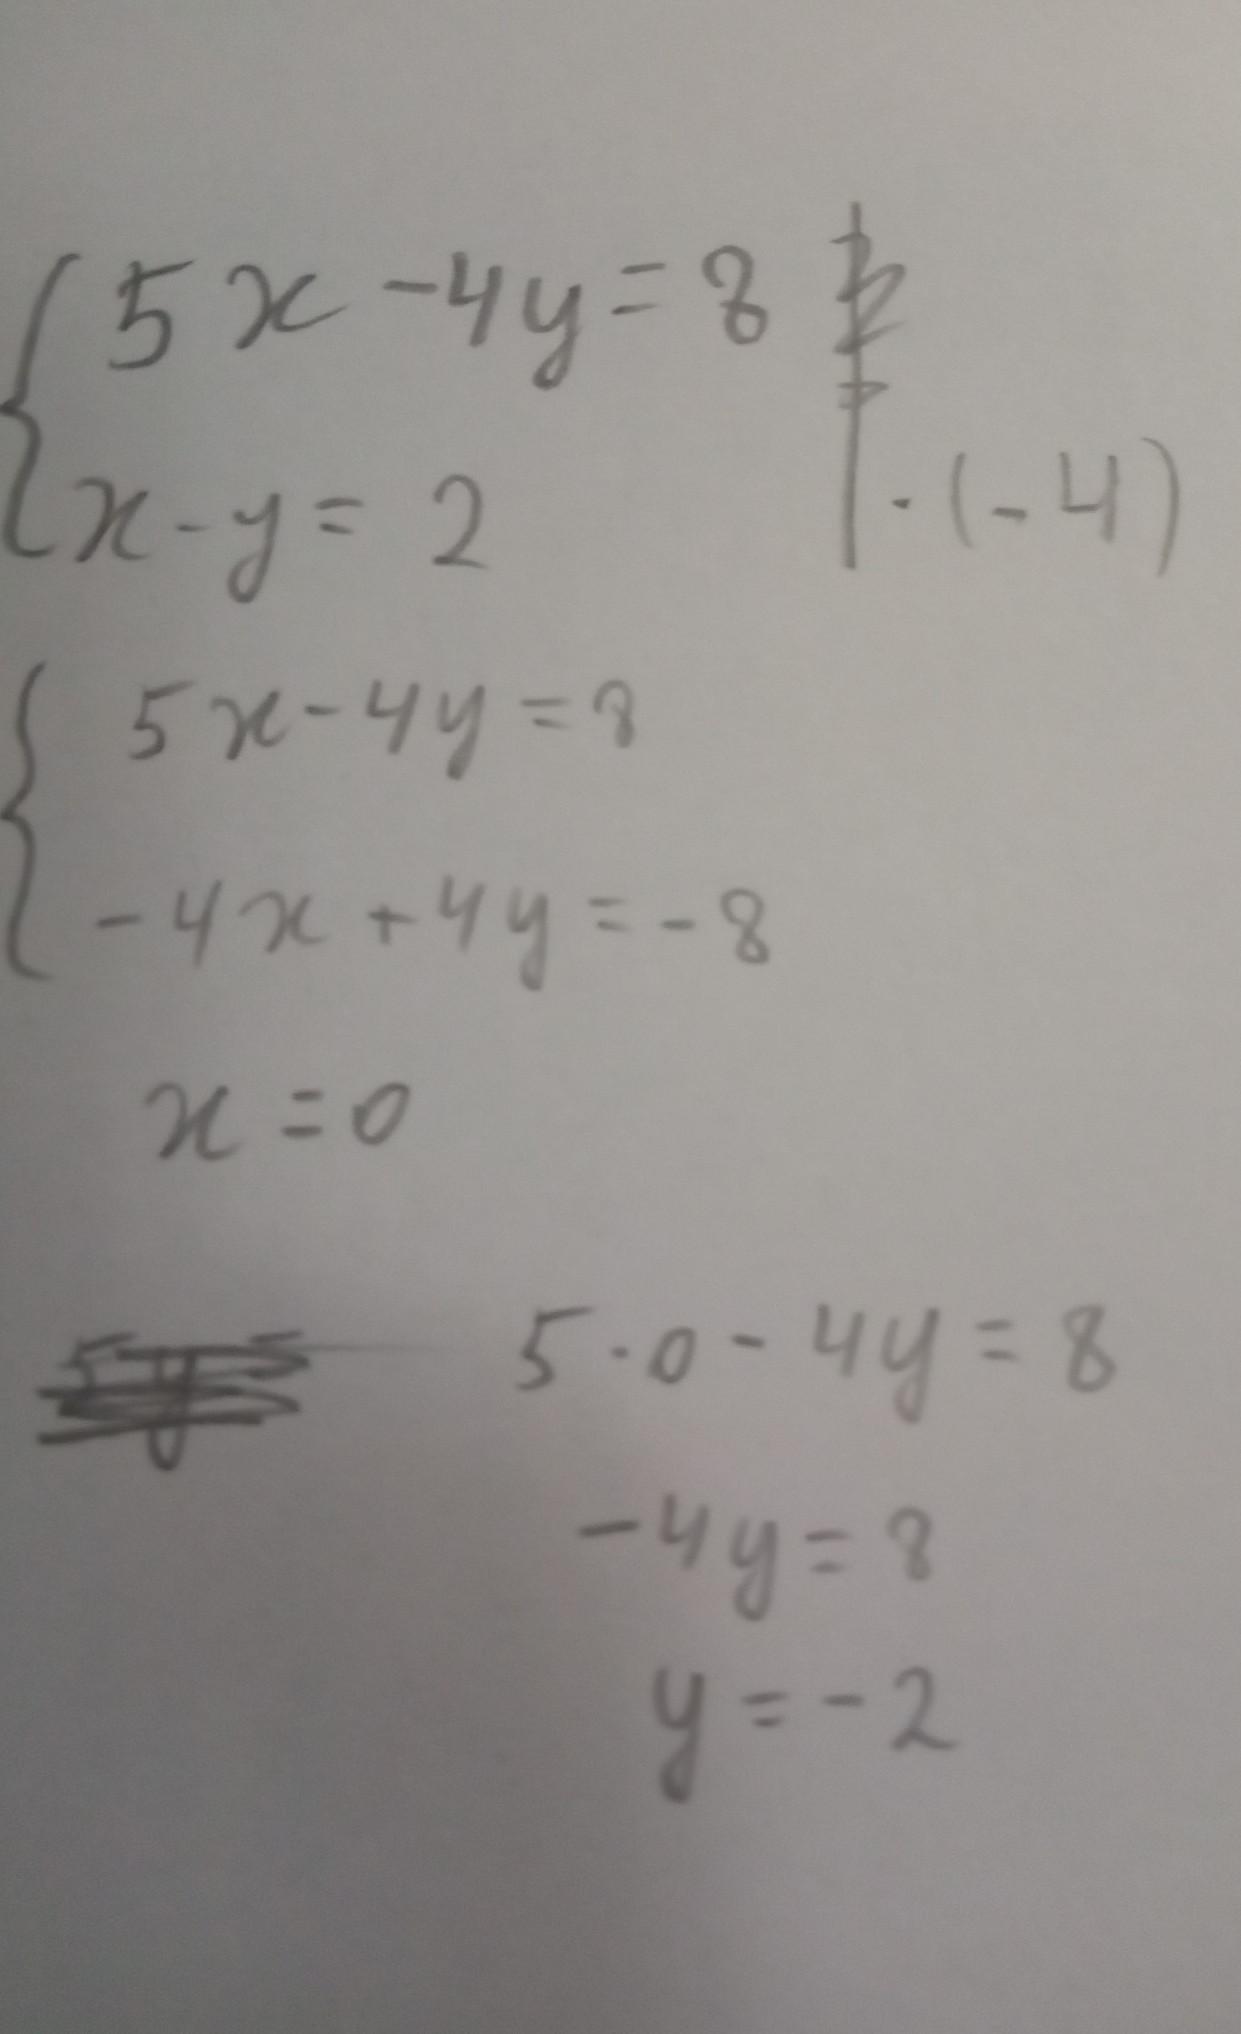 5x - 4y = 8
x - y = 2 | · (-4)
5x - 4y = 8
-4x + 4y = -8
x = 0
5 · 0 - 4y = 8
-4y = 8
y = -2